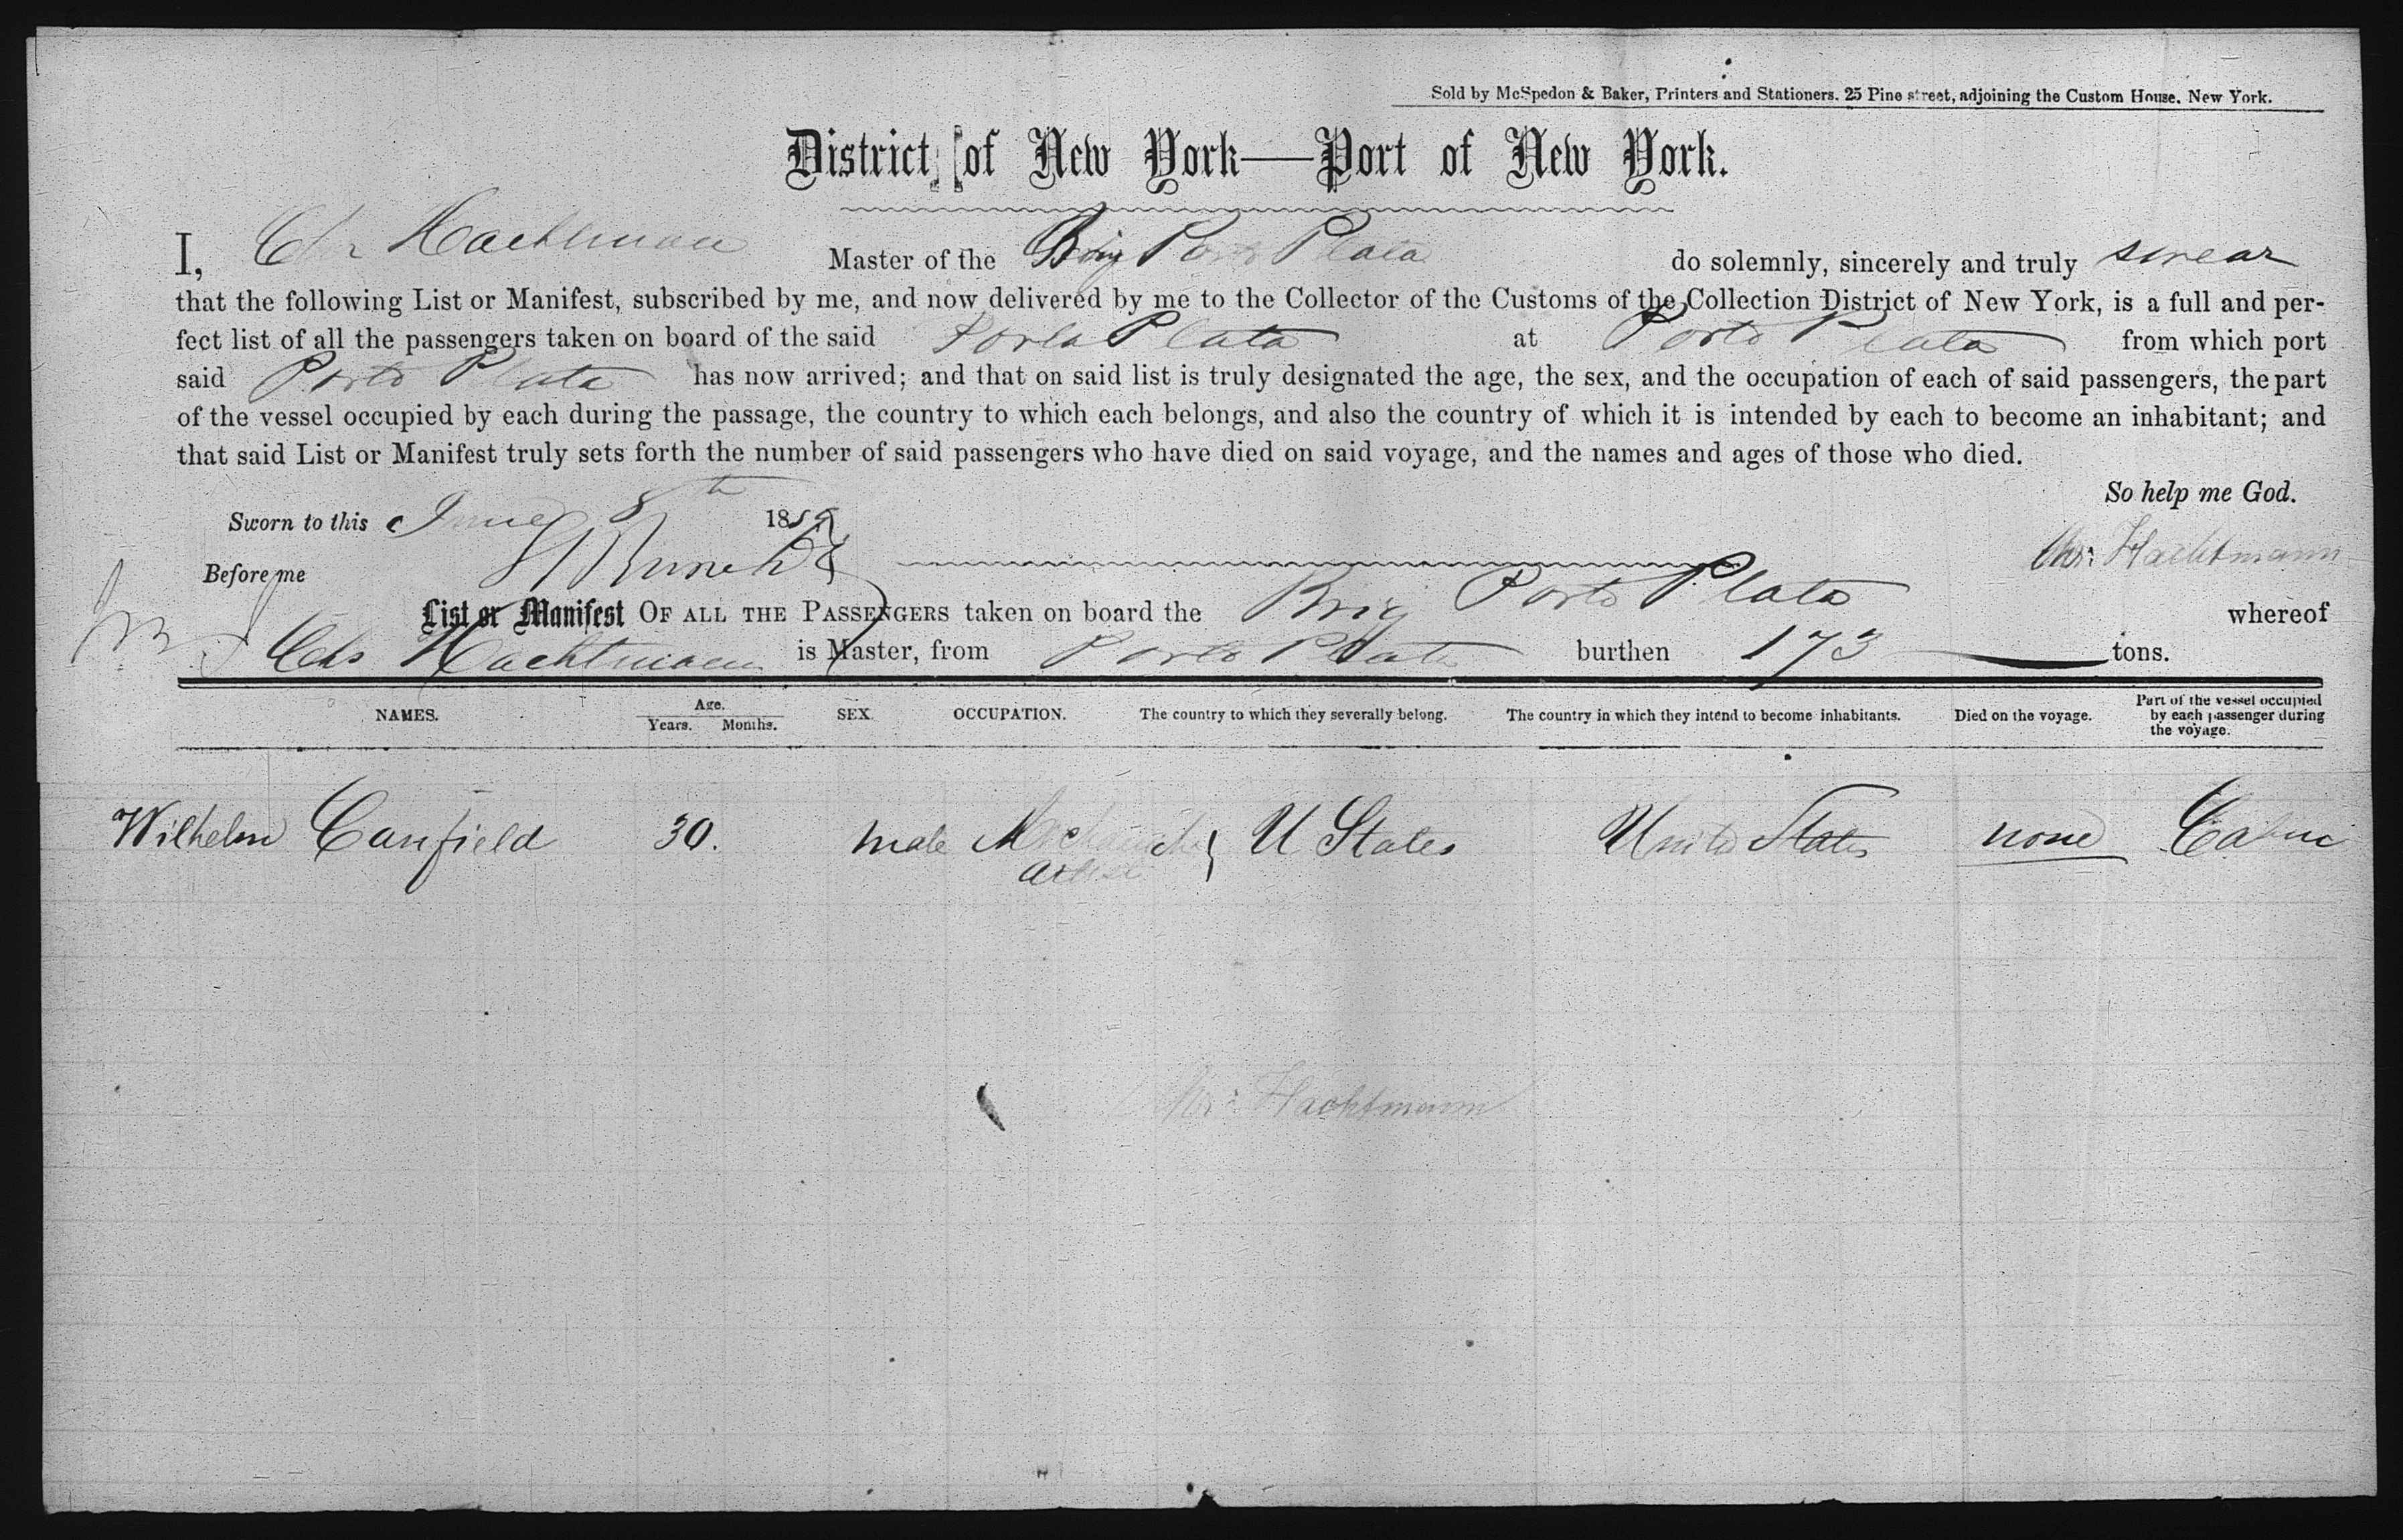 Sold by McSpedon & Baker, Printers and Stationers. 25 Pine street, adjoining the Custom House. New York.
District of New York—Port of New York.
I, Chr Hachtmann Master of the Brig Porto Plata do solemnly, sincerely and truly swear
that the following List or Manifest, subscribed by me, and now delivered by me to the Collector of the Customs of the Collection District of New York, is a full and per-
fect list of all the passengers taken on board of the said Porto Plata at Porto Plata from which port
said Porto Plata has now arrived; and that on said list is truly designated the age, the sex, and the occupation of each of said passengers, the part
of the vessel occupied by each during the passage, the country to which each belongs, and also the country of which it is intended by each to become an inhabitant; and
that said List or Manifest truly sets forth the number of said passengers who have died on said voyage, and the names and ages of those who died.
So help me God.
Sworn to this June 8th 1859
Chr: Hachtmann
Before me
List or Manifest OF ALL THE PASSENGERS taken on board the Brig Porto Plata whereof
Chs Hachtmann is Master, from Porto Plata burthen 173 tons.
NAMES. Age. Years. Months. SEX. OCCUPATION. The country to which they severally belong. The country in which they intend to become inhabitants. Died on the voyage. Part of the vessel occupied by each passenger during the voyage.
Wilhelm Canfield 30. male U States United States none Cabin
Chr: Hachtmann